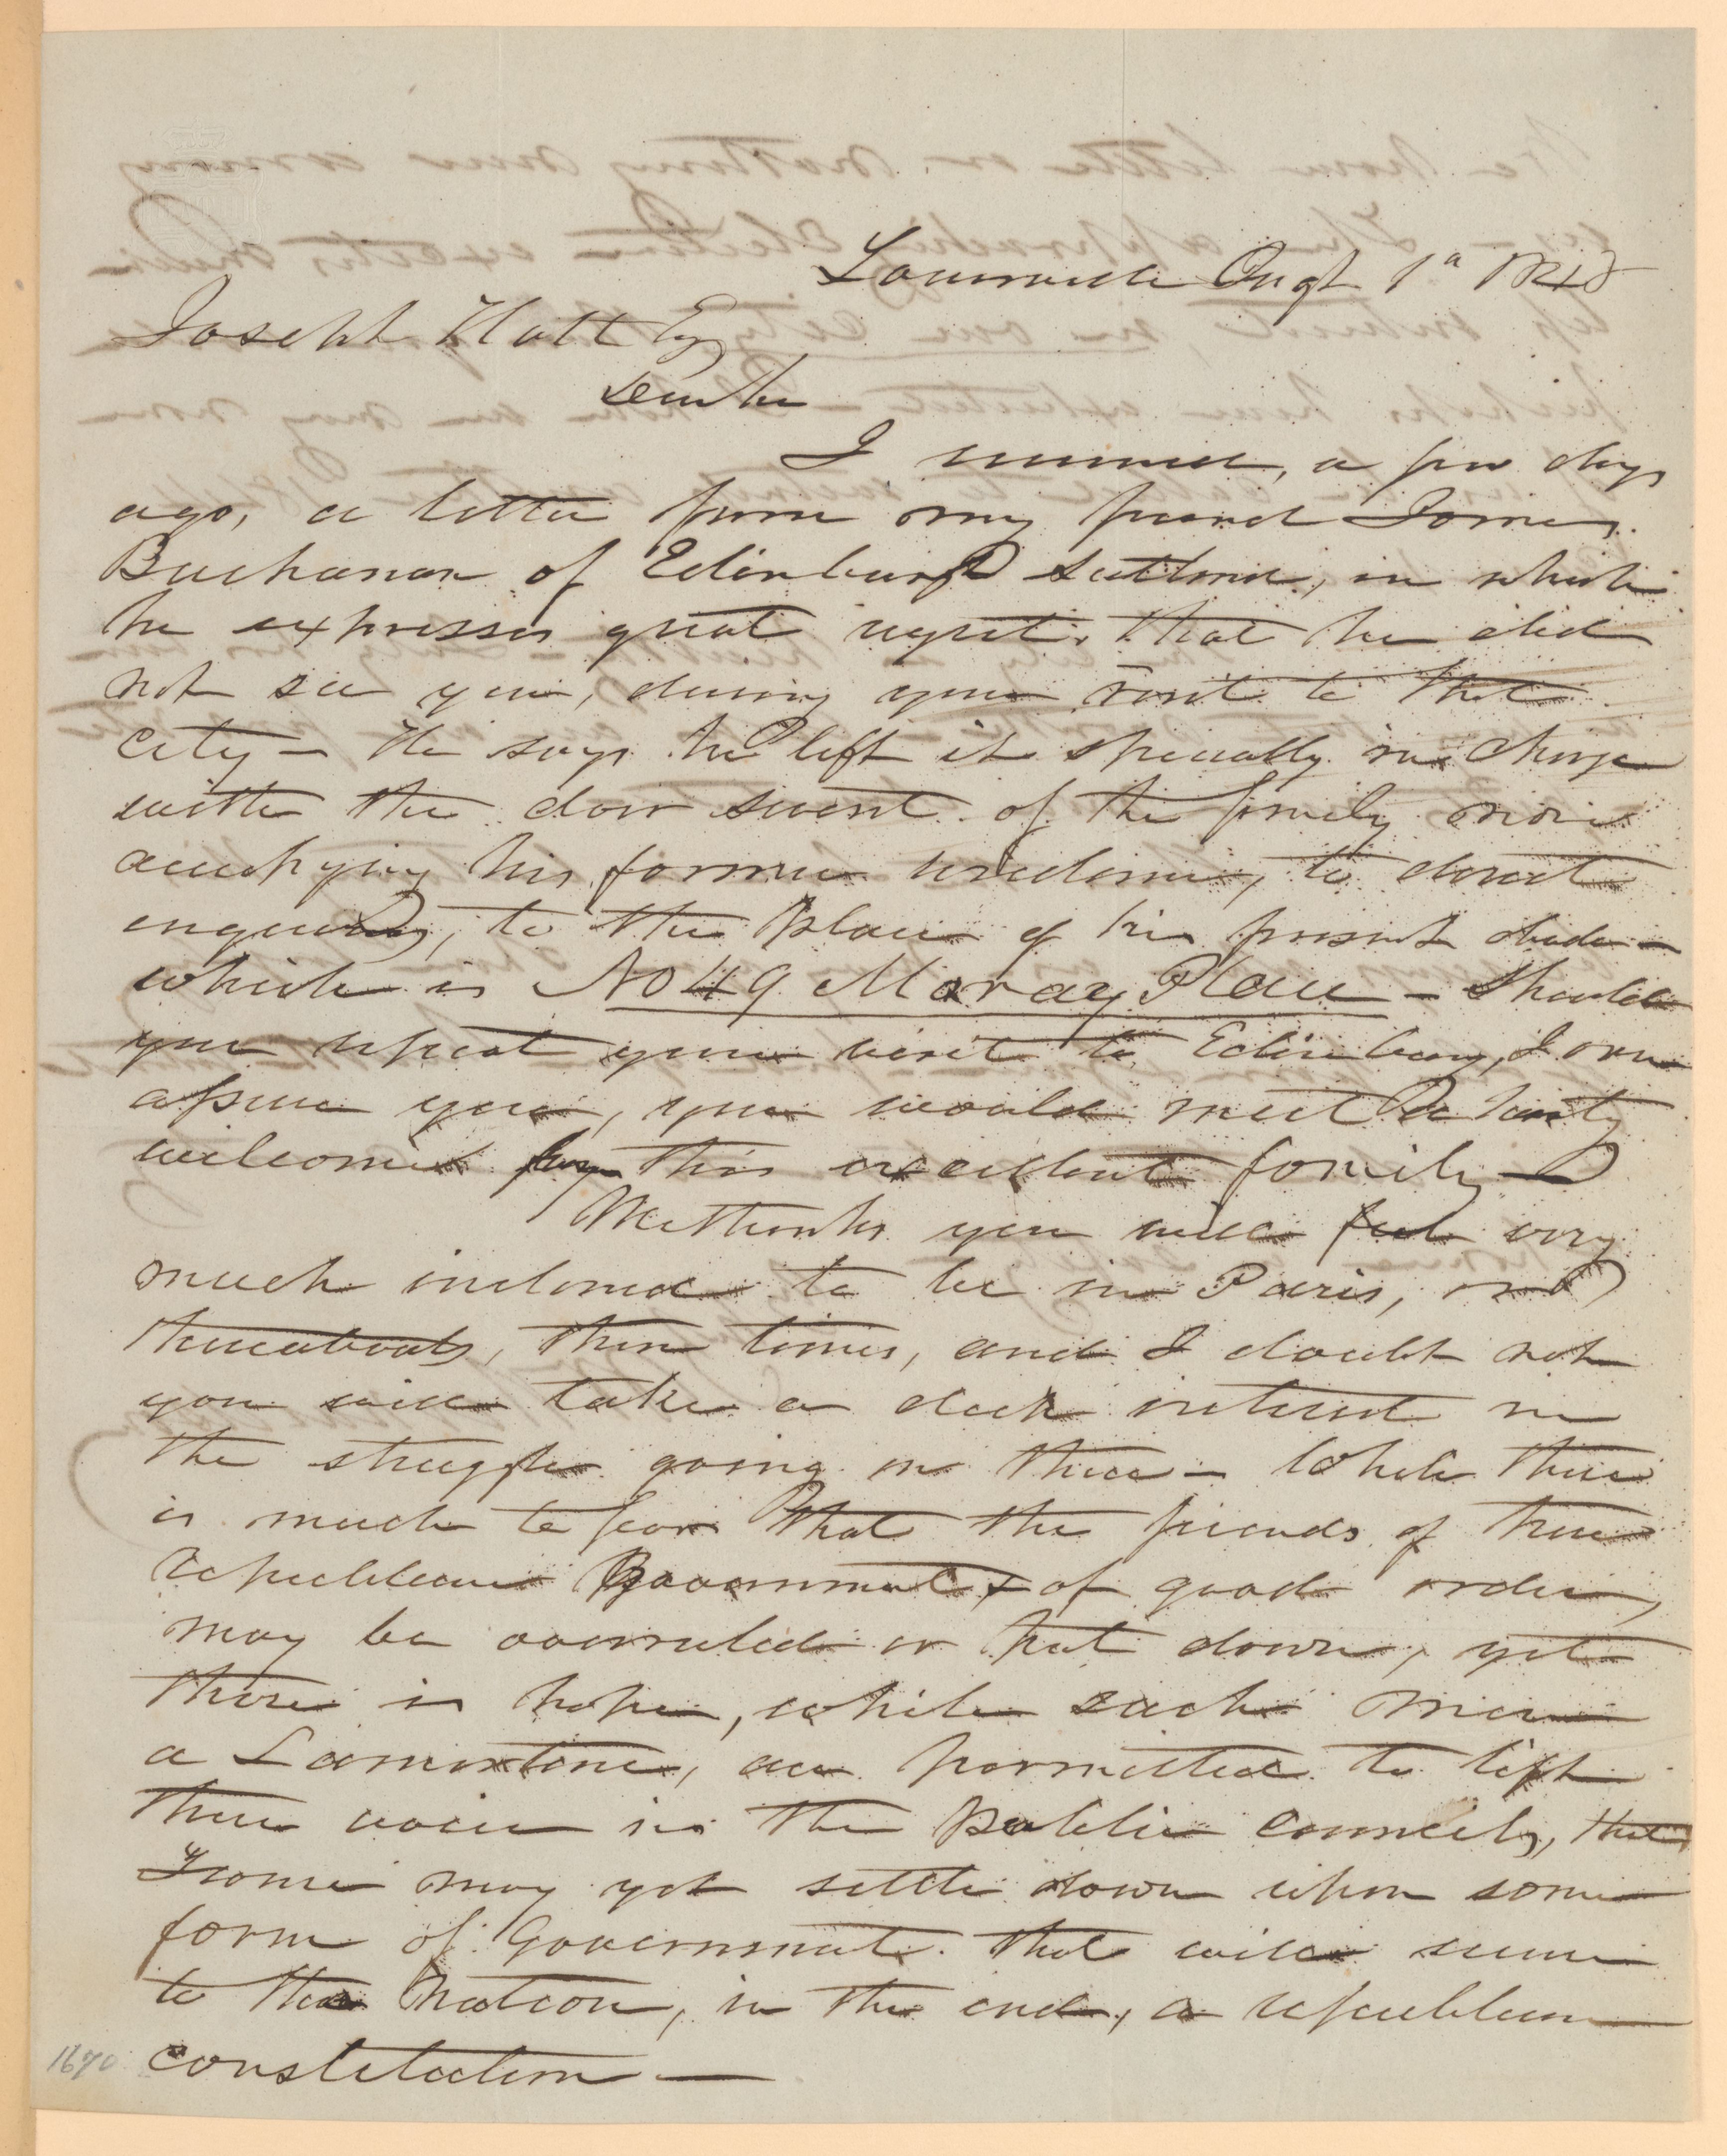 Louisville Augt 1st 1848
Joseph Holt Esq
Dear Sir
I received, a few days
ago, a letter from my friend James
Buchanan of Edinburgh Scotland, in which
he expresses great regret, that he did
not see you, during your visit to that
city — He says he left it specially in charge
with the door servant of the family now
occupying his former residence, to direct
enquiries, to the place of his present abode —
which is No 49 Moray Place — Should
you repeat your visit to Edinburg, I can
assure you, you would meet a hearty
welcome by this excellent family —
Methinks you will feel very
much inclined to be in Paris, and
thereabouts, these times, and I doubt not
you will take a deep interest in
the struggle going on there — While there
is much to fear that the friends of true
republican Government & of good order,
may be overruled or put down, yet
there is hope, while such men
a Lamartine, are permitted to lift
their voice in the public councils, that
France may yet settle down upon some
form of Government that will secure
to the Nation, in the end, a republican
constitution —
1670